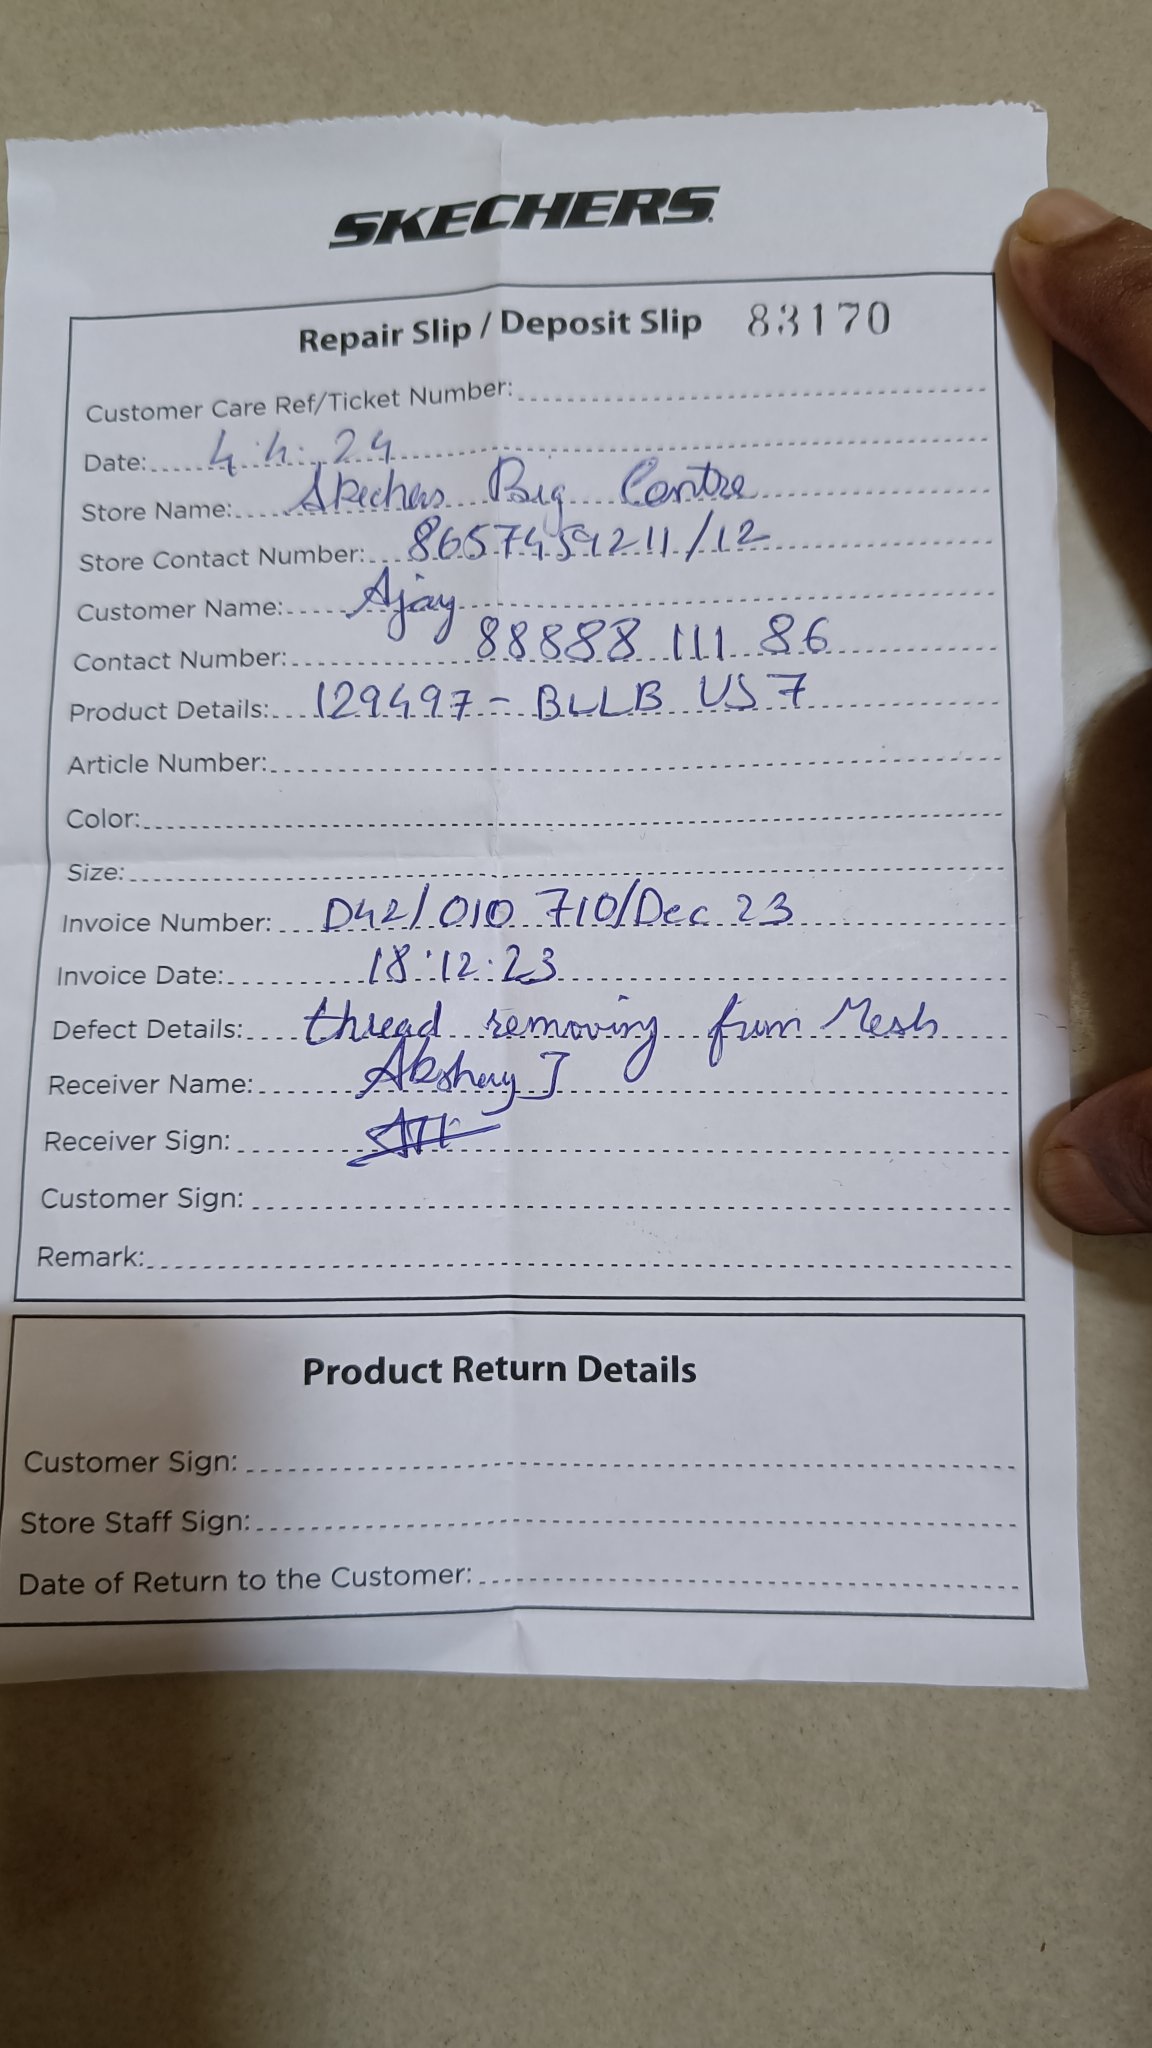 SKECHERS
Repair Slip / Deposit Slip 83170
Customer Care Ref/Ticket Number:
Date: 4.4.24
Store Name: Skechers Big Centre
Store Contact Number: 8657459211/12
Customer Name: Ajay
Contact Number: 88888 111 86
Product Details: 129497 - BLLB US 7
Article Number:
Color:
Size:
Invoice Number: D42/010 710/Dec 23
Invoice Date: 18:12:23
Defect Details: thread removing from Mesh
Receiver Name: Akshay J
Receiver Sign:
Customer Sign:
Remark:
Product Return Details
Customer Sign:
Store Staff Sign:
Date of Return to the Customer: